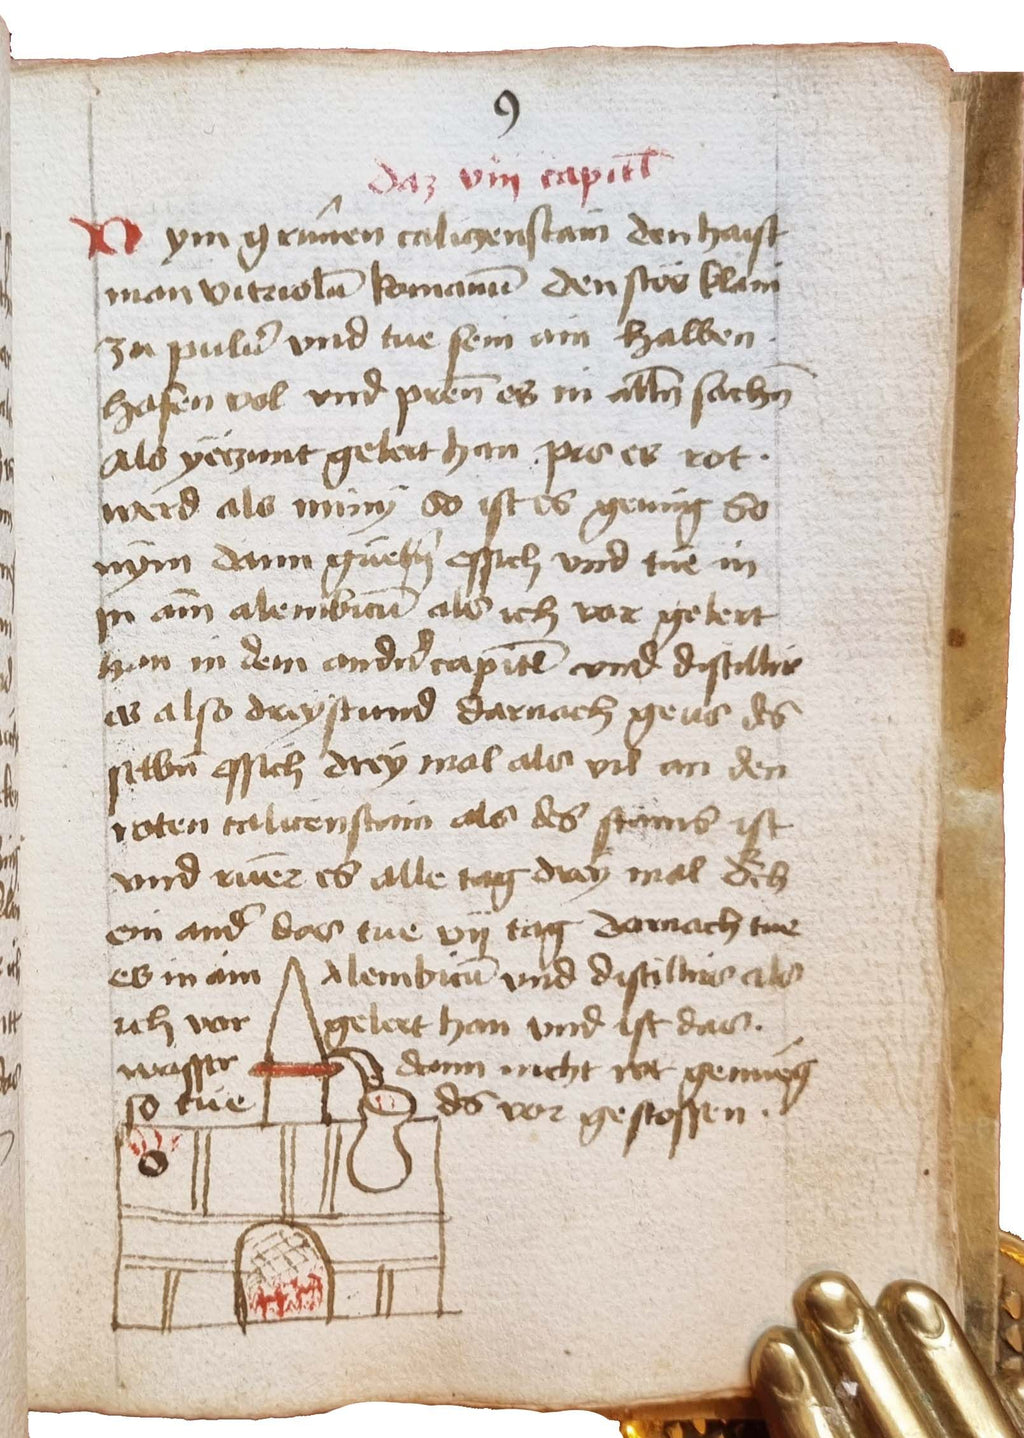 9
daz viij capitl
Nym grunen caliczenstain den haist
man vitriolū Romanū den stos klain
zu puluer vnd tue sein ain halben
hafen vol vnd pren̄ es in alln̄ sachn̄
als yeczunt gelert han pis es rot
werd als miny so ist es genug So
nym dann essich vnd tue in
in ain alembicū als ich vor gelert
han in dem andern capitl vnd distillir
es also dreystund darnach geus des
selbn̄ essich drey mal als vil an den
roten calicenstain als des stains ist
vnd ruer es alle tag drey mal
ein ander das tue vij tag darnach tue
es in ain Alembicū vnd distillirs als
ich vor gelert han vnd ist das
wasser dann nicht rot genueg
so tue des vor gestossen